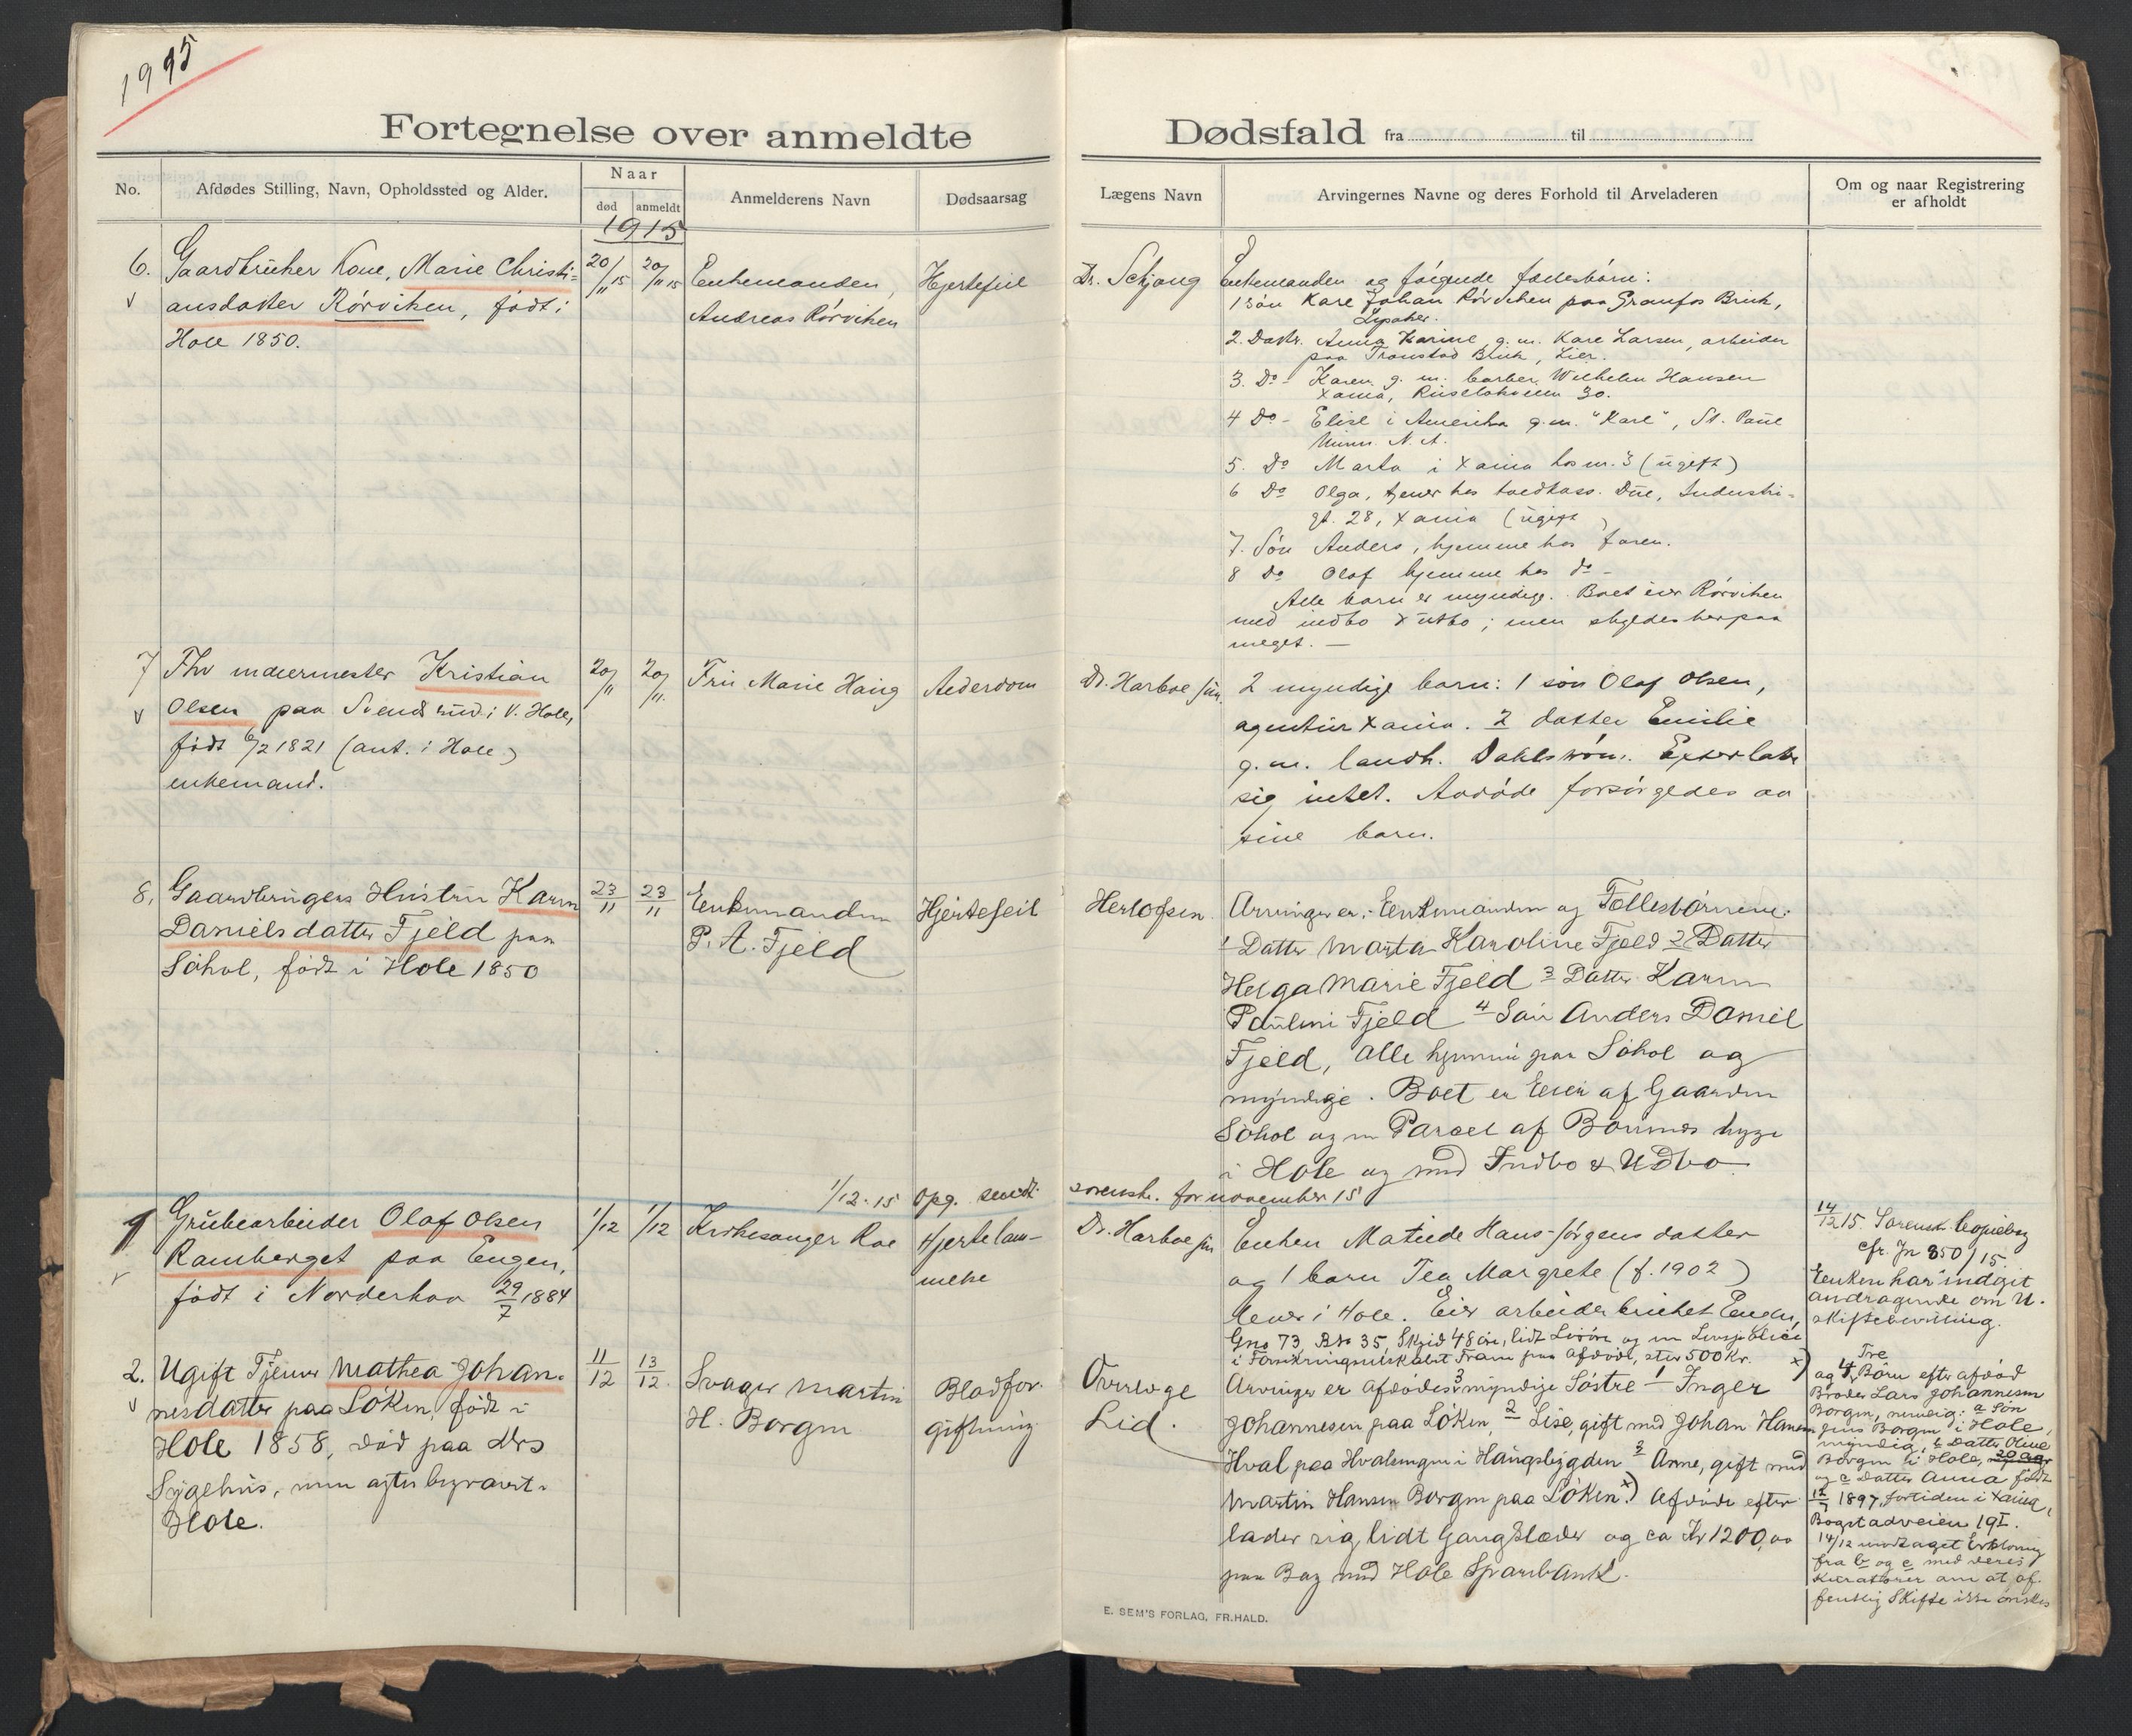 1915
Fortegnelse over anmeldte Dødsfald fra til
No.
Afdødes Stilling, Navn, Opholdssted og Alder.
Naar
død
anmeldt
Anmelderens Navn
Dødsaarsag
Lægens Navn
Arvingernes Navne og deres Forhold til Arveladeren
Om og naar Registrering
er afholdt
1915
6.
Gaardbruker Kone, Marie Christi-
ansdatter Rørviken, født i
Hole 1850.
20/11 15
20/11 15
Enkemanden,
Andreas Rørviken
Hjertefeil
Dr. Schjong
Enkemanden og følgende fællesbørn:
1 søn Karl Johan Rørviken paa Granfos Bruk,
Lysaker.
2. Dattr. Anna Karine g. m. Karl Larsen, arbeider
paa Transtad Bruk, Lier.
3. Do - Karen g. m. barber Wilhelm Hansen
Xania, Ruseløkveien 30.
4 Do - Elise i Amerika g. m. "Karl", St. Paul
Minn. N. A.
5. Do Marta i Xania hos nr. 3 (ugift)
6 Do Olga, tjener hos toldkass. Due, Industri-
gt. 28, Xania (ugift)
7. Søn Anders, hjemme hos faren.
8 Do Olaf hjemme hos do -
Alle barn er myndige. Boet eier Rørviken
med indbo & utbo; men skyldes herpaa
meget. —
7
Fhv murermester Kristian
Olsen paa Svendsrud i V. Hole,
født 6/2 1821 (ant. i Hole)
enkemand.
20/11
20/11.
Fru Marie Haug
Alderdom
Dr. Harboe jun.
2 myndige barn: 1 søn Olaf Olsen,
agentur Xania. 2 datter Emilie
g. m. landh. Dahlstrøm. Efterlater
sig intet. Avdøde forsørgedes av
sine barn.
8.
Gaardbrugers Hustru Karen
Danielsdatter Fjeld paa
Søhol, født i Hole 1850
23/11
23/11
Enkemanden
P. A. Fjeld
Hjertefeil
Herlofsen
Arvinger er: Enkemanden og Fællesbørnene:
1 Datter Marta Karoline Fjeld 2 Datter
Helga Marie Fjeld 3 Datter Karen
Pauline Fjeld 4 Søn Anders Daniel
Fjeld, alle hjemme paa Søhol og
myndige. Boet er Eier af Gaarden
Søhol og en Parcel af Bønsnes
i Hole og med Indbo & Udbo.
1/12. 15 opg. sendt sorenskr. for november 15
9
Grubearbeider Olaf Olsen
Ramberget paa Engen,
født i Norderhov 29/7 1884
1/12
1/12
Kirkesanger Roe
Hjertelam-
melse
Dr. Harboe jun
Enken Matilde Hans-Jørgensdatter
og 1 barn Tea Margrete (f. 1902)
Alene i Hole. Eier arbeiderbruket Engen,
Gno 73, Bno 35, Skyld 48 øre, lidt Løsøre og en Livspolice
i Forsikringsselskabet Fram paa Afdøde, stor 500 Kr.
14/12 15. Sorensk. Copiebog
cfr. Jn 850/15.
Enken har indgit
andragende om U-
skiftebevilling.
2.
Ugift Tjener Mathea Johan-
nesdatter paa Løken, født i
Hole 1858, død paa Drs
Sygehus, men agtes begravet i
Hole.
11/12
13/12.
Svoger Martin
H. Borgen
Blodfor-
giftning
Overlæge
Lid.
Arvinger er afdødes 3 myndige Søstre 1 Inger
Johannesen paa Løken, 2 Lise, gift med Johan Hansen
Hval paa Hvalsengen i Haugsbygden 3 Anne, gift med
Martin Hansen Borgen paa Løken x) Afdøde efter-
lader sig lidt Gangklæder og ca Kr 1200,00
paa Bog med Hole Sparebank.
x) Tre
og 4 Børn efter afdød
Broder Lars Johannesen
Borgen, nemlig: a Søn
Jens Borgen i Hole,
myndig, b Datter Oline
Borgen i Hole, 20 aar
og c Datter Anna født
12/9 1897, fortiden i Xania,
Bogstadveien 19 I.
14/12 modtaget Erklæring
fra b og c med deres
Kuratorer om at of-
fentlig Skifte ikke ønskes
E. SEM'S FORLAG, FR.HALD.